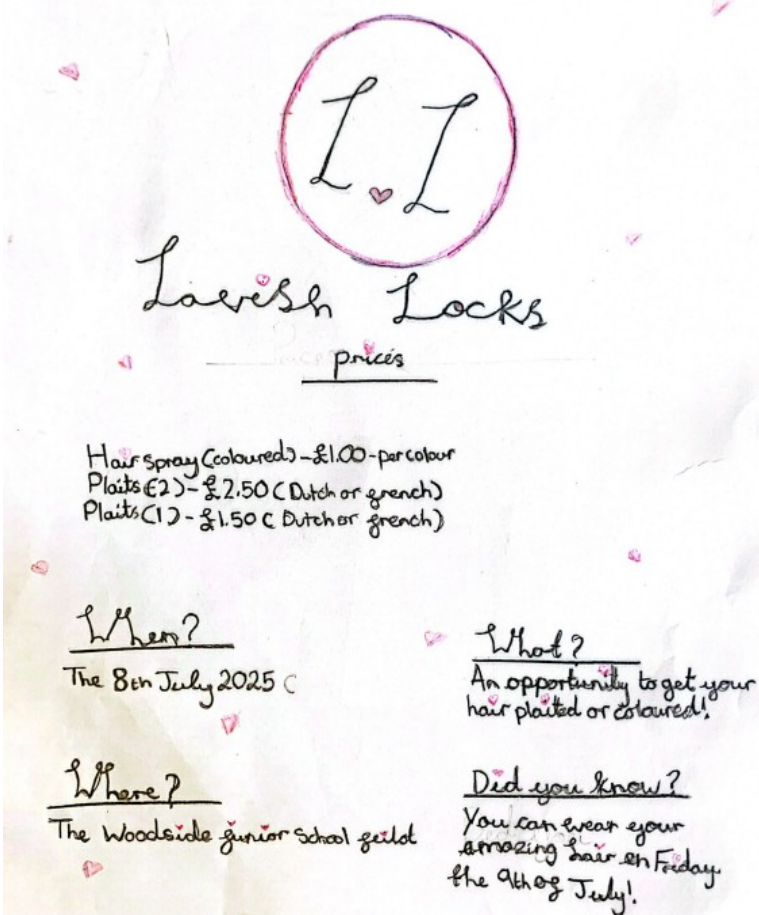 L.L
Lavish Locks
prices
Hair spray (coloured) - £1.00 - per colour
Plaits (2) - £2.50 ( Dutch or french)
Plaits (1) - £1.50 ( Dutch or french)
When?
The 8th July 2025
What?
An opportunity to get your
hair plaited or coloured!
Where?
The Woodside junior school
Did you know?
You can wear your
amazing hair on Friday
the 9th of July!